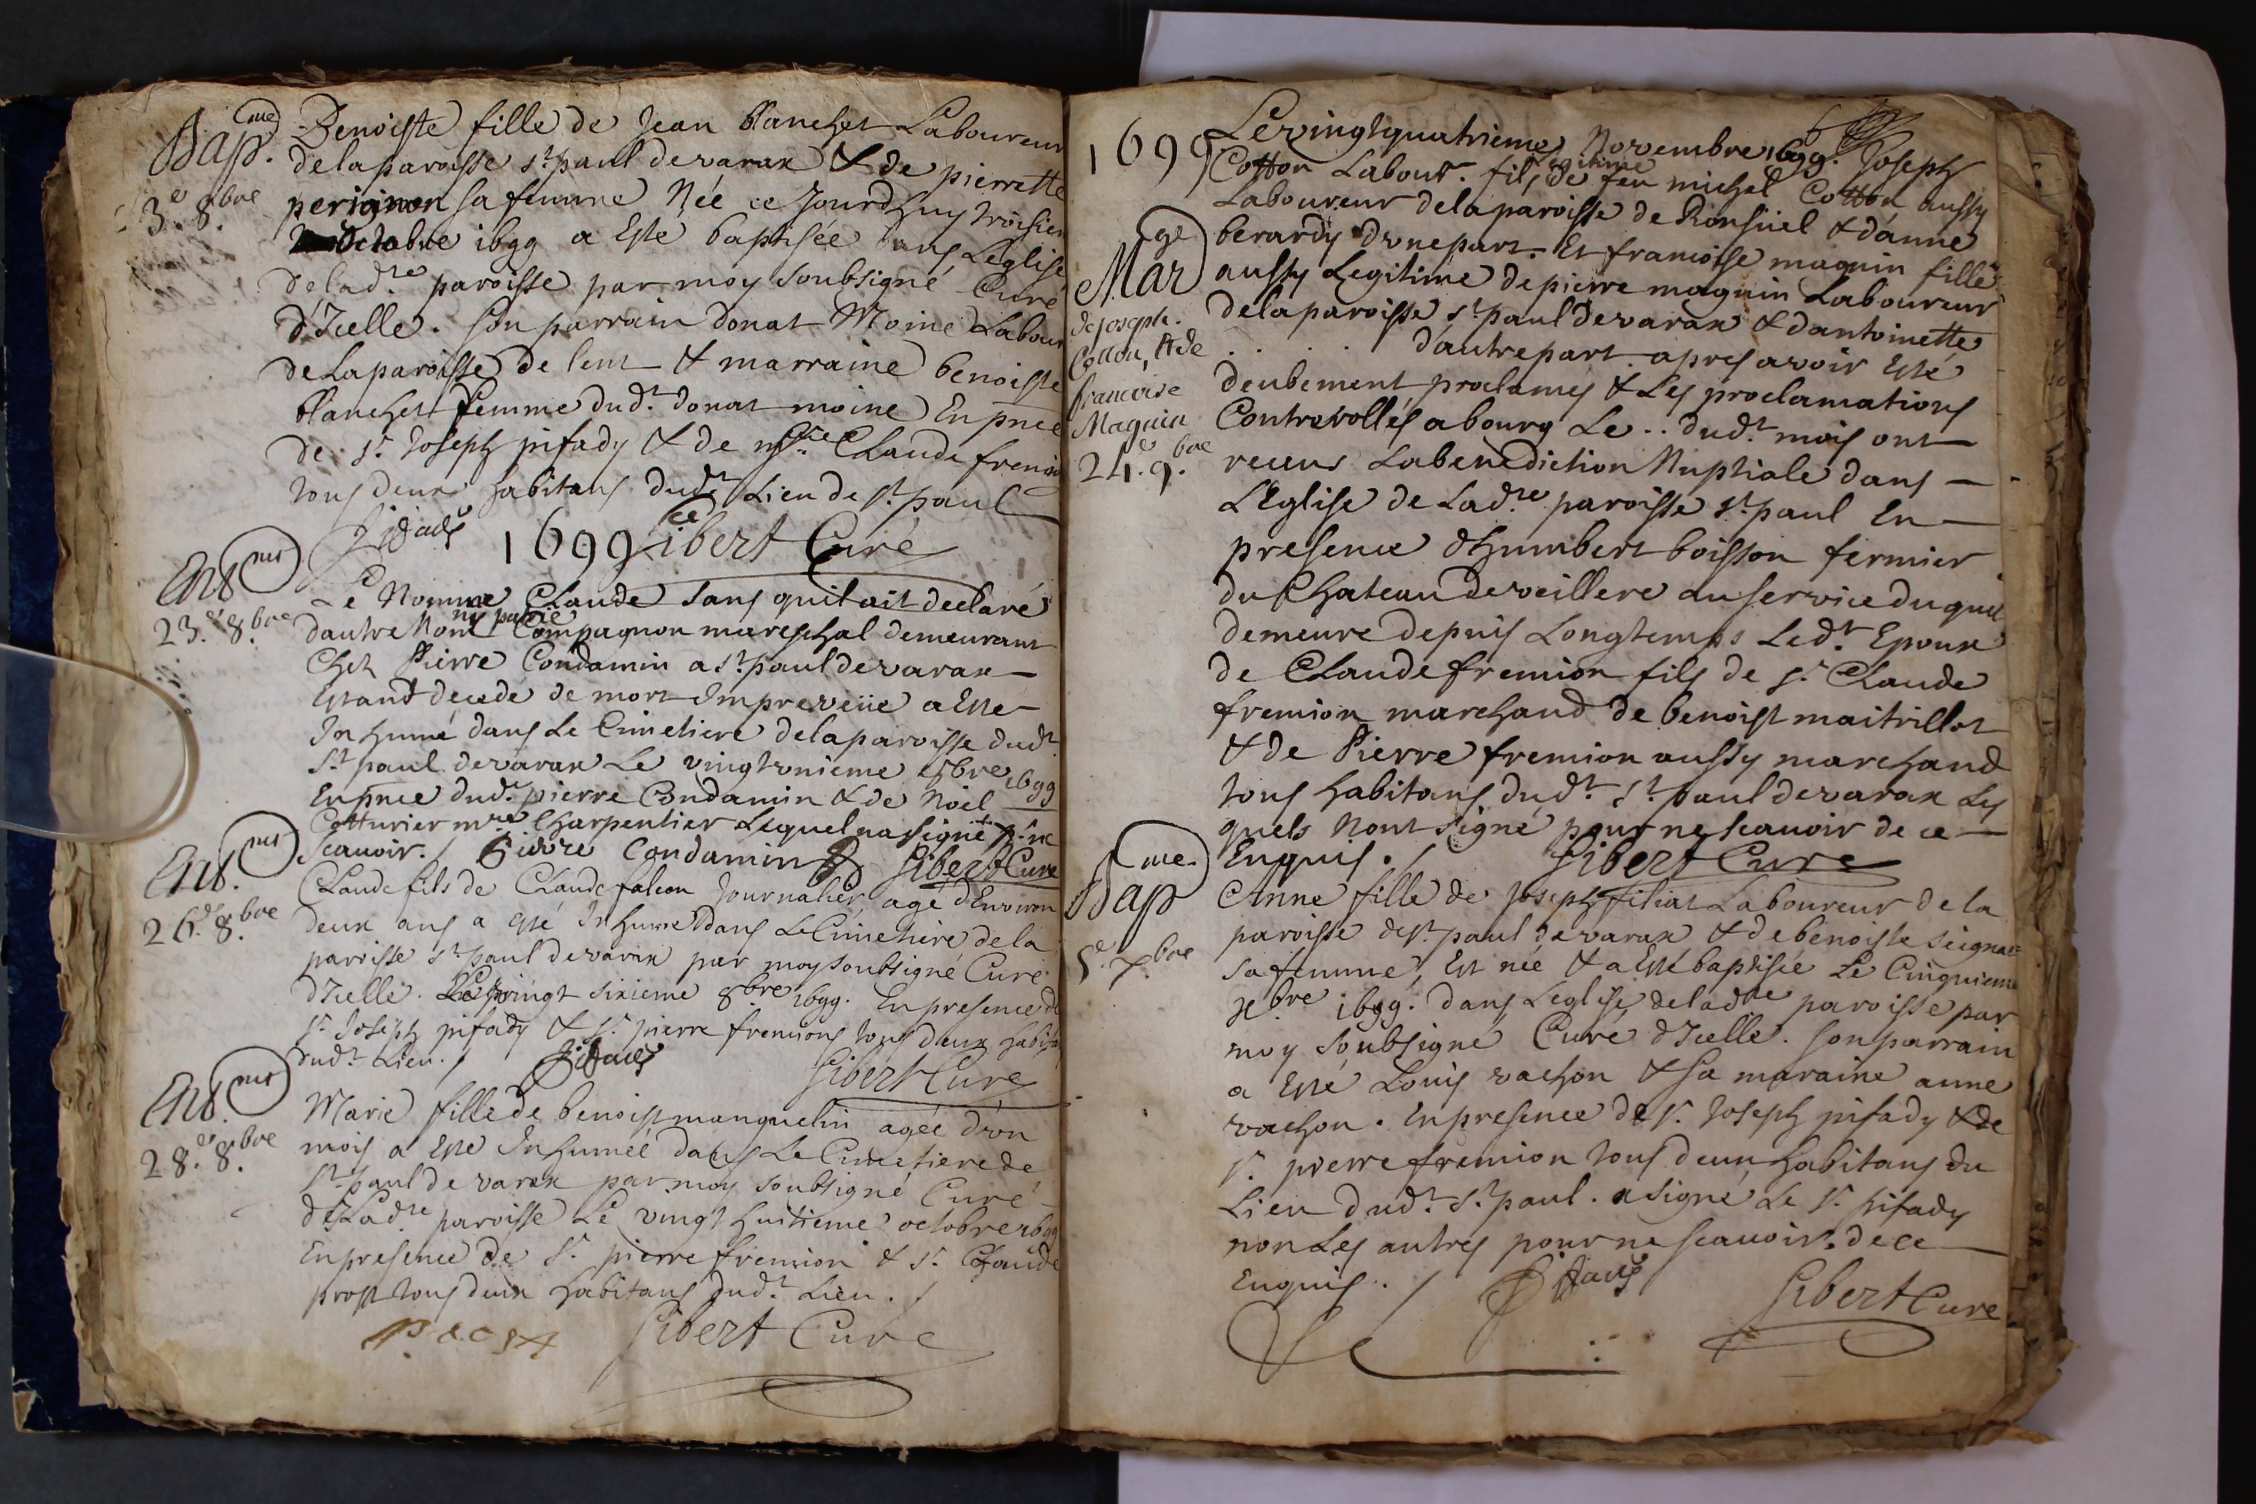 Bap.me
3.e 8.bre
Benoiste fille de Jean blanchet Laboureur
delaparoisse st. paul devarax & de pierrette
perignon sa femme Née ce Jourdhuy troisiem
octobre 1699 a Esté baptisée dans Leglise
delad.te paroisse par moy soubsigné Curé
d'Icelle. son parrain donat Moine Labour
de Laparoisse de lent & marraine benoiste
blanchet femme dud.t donat moine En pnce
de sr. Joseph pifady & de Claude fremion
tous deux habitans dud.t Lieu de st. paul
Pifady 1699 Gibert Curé
Ent.mt
23.e 8.bre
Le Nommé Claude sans quil ait declaré
dautre Nom ny patrie Compagnon mareschal demeurant
Chez Pierre Condamin a st. paul devarax
Estant decedé de mort Impreveüe a Esté
Inhumé dans Le Cimetiere delaparoisse dud.t
St. paul devarax Le vingtroisieme 8bre 1699
En pnce dud.t pierre Condamin & de Noël
Cotturier m.re Charpentier Lequel na signé p.r ne
scauoir. / Pierre Condamin Gibert Curé
Ent.mt
26.e 8.bre
Claude fils de Claude falcon Journalier agé d'Environ
deux ans a esté Inhumé dans Le Cimetiere de la
paroisse st. paul devarax par moy soubsigné Curé
d'Icelle. Le vingt sixieme 8bre 1699. En presence de
sr. Joseph pifady & sr. pierre fremions tous deux habita
dud.t Lieu. / Pifady Gibert Curé
Ent.mt
28.e 8.bre
Marie fille de benoist manguelin agée d'un
mois a Esté Inhumée dans Le Cimetiere de
St. paul de varax par moy soubsigné Curé
de Lad.te paroisse Le vingt huitieme octobre 1699
En presence de sr. pierre fremion & sr. Claude
prost tous deux habitans dud.t Lieu. /
Gibert Curé
1699
Levingtquatrieme Novembre 1699. Joseph
Cotton Labour. fils legitime de feu michel Cotton aussy
Laboureur delaparoisse de Ronsüel & d'anne
Mar.ge
de Joseph
Cotton, & de
francoise
Maguin
24.e 9.bre
berardy d'une part. Et francoise maguin fille
aussy Legitime de pierre maguin Laboureur
delaparoisse st. paul devarax & d'antoinette
. . . . d'autre part apres avoir Esté
deubement proclamés & Les proclamations
Controrollés a bourg Le .. dud.t mois ont
receus Labenediction Nuptiale dans
L'Eglise de Lad.te paroisse st. paul En
presence d'humbert boisson fermier
du Chateau deveillere au service duquel
demeure depuis Longtemps Led.t Epoux
de Claude fremion fils de sr. Claude
fremion marchand de benoist maitrillot
& de Pierre fremion aussy marchand
tous habitans dud.t st. paul devarax Les
quels Nont signé pour ne scauoir de ce
Enquis. / Gibert Curé
Bap.me
5.e x.bre
Anne fille de Joseph filiat Laboureur de la
paroisse de st. paul devarax & de benoiste
sa femme Est née & a Esté baptisée Le Cinquieme
xbre 1699. dans Leglise delad.te paroisse par
moy soubsigné Curé d'Icelle. son parrain
a Esté Louis vachon & sa maraine anne
vachon. En presence de sr. Joseph pifady & de
sr. pierre fremion tous deux habitans du
Lieu dud.t st. paul. a signé Le sr. pifady
non Les autres pour ne scauoir de ce
Enquis. / Pifady Gibert Curé